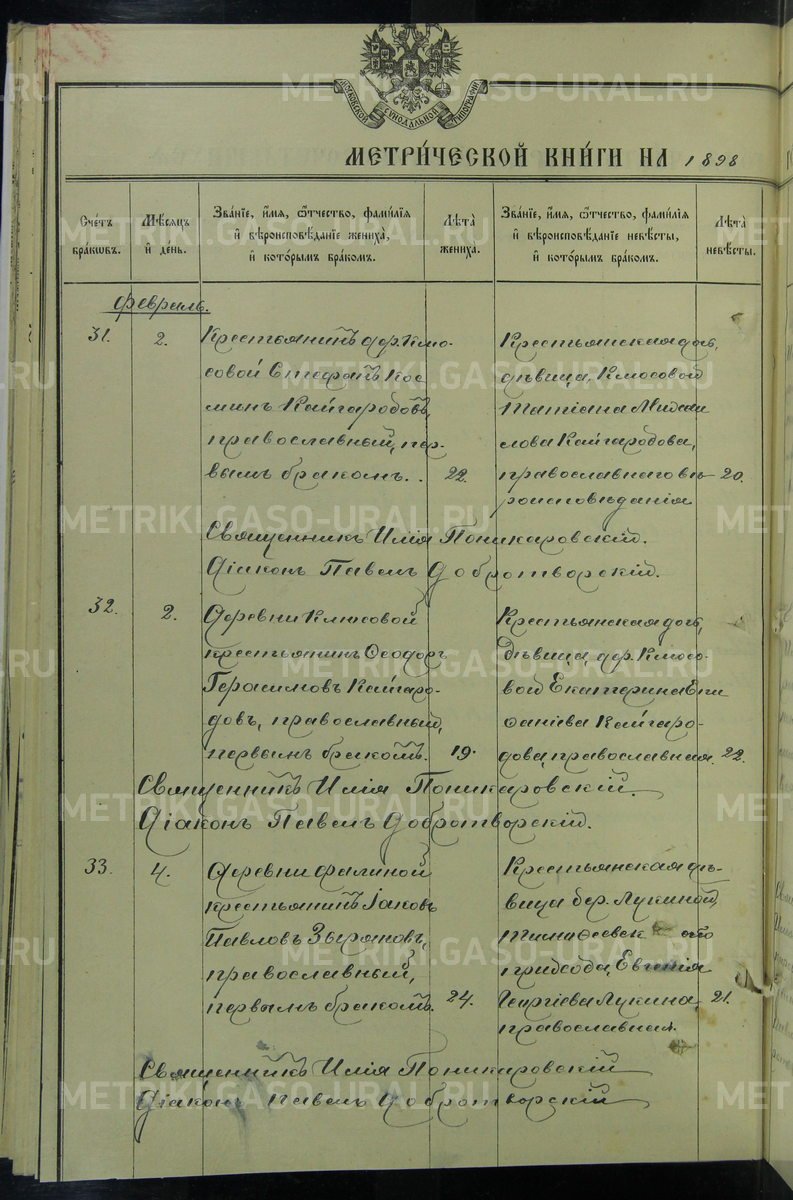 МОСКОВСКОЙ СѴНОДАЛЬНОЙ ТИПОГРАФІИ
МЕТРИ́ЧЕСКОЙ КНИ́ГИ НА 1898
Сче́тъ бра́кѡвъ.
Мѣ́сяцъ и҆ де́нь.
Зва́нїе, и҆́мя, ѿтчество, фами́лїя и҆ вѣроисповѣ́данїе жениха̀, и҆ кото́рымъ бра́комъ.
Лѣ́та жениха̀.
Зва́нїе, и҆́мя, ѿтчество, фами́лїя и҆ вѣроисповѣ́данїе невѣ́сты, и҆ кото́рымъ бра́комъ.
Лѣ́та невѣ́сты.
Февраль.
31.
2.
Крестьянинъ дер. Клю-
совой Стефанъ Кос
минъ Кайгародовъ,
православный, пер-
вымъ бракомъ.
22.
Крестьянская дочь,
дѣвица, Клюсовой
Татіана Михаи
лова Кайгародова,
православнаго вѣ
роисповѣданія
20.
Священникъ Илія Поникаровскій.
Діаконъ Павелъ Добротворскій.
32.
2.
Деревни Клюсовой
крестьянинъ Ѳеодоръ
Герасимовъ Кайгаро-
довъ, православный,
первымъ бракомъ.
19.
Крестьянская дочь,
дѣвица, дер. Клюсо-
вой Екатерина Епи
фаніева Кайгаро-
дова, православная.
22.
Священникъ Илія Поникаровскій.
Діаконъ Павелъ Добротворскій.
33.
4.
Деревни Фалиной
крестьянинъ Іаковъ
Павловъ Зыряновъ,
православный,
первымъ бракомъ.
24.
Крестьянская дѣ-
вица дер. Лукиной,
Тимоѳеевск
прихода, Евгенія
Георгіева Лукина,
православная.
21.
Священникъ Илія Поникаровскій
Діаконъ Павелъ Добротворскій
METRIKI.GASO-URAL.RU